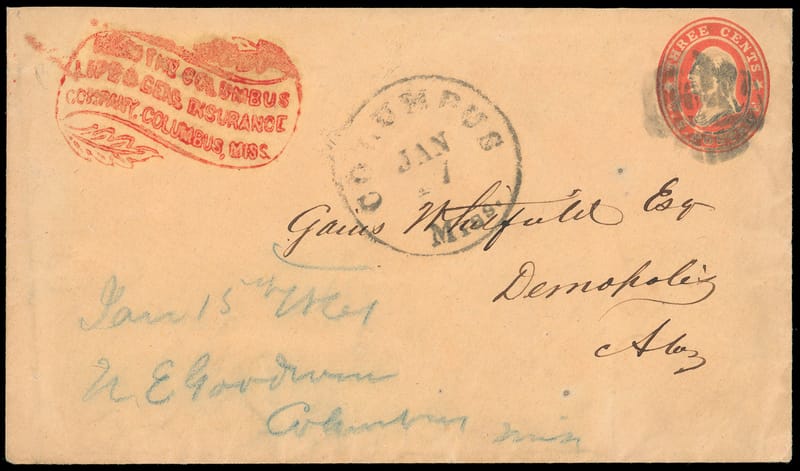 THE COLUMBUS
LIFE & GEN. INSURANCE
COMPANY, COLUMBUS, MISS.
COLUMBUS
JAN
17
Miss.
THREE CENTS
Gaius Whitfield Esq
Demopolis
Ala
Jan 15th
N E Goodwin
Columbus Miss